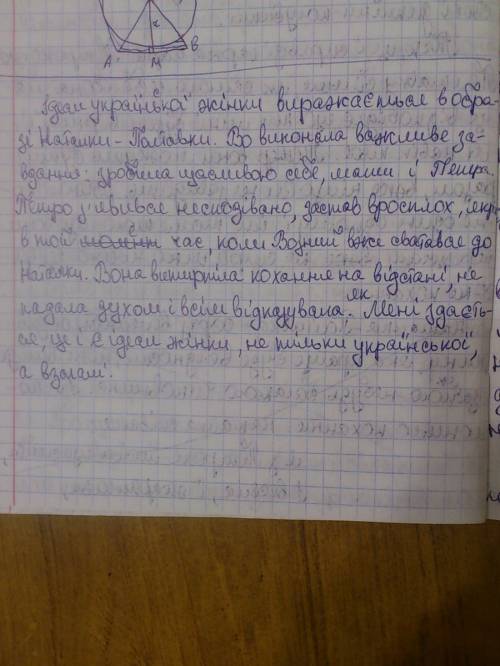 x
А М В
Ідеал української жінки виражається в обра-
зі Наталки-Полтавки. Во виконала важливе за-
вдання: зробила щасливою себе, маму і Петра.
Петро з'явився несподівано, застав вросплох, якр
в той час, коли Возний вже сватався до
Наталки. Вона витерпіла кохання на відстані, не
падала духом і всім відказувала. Як Мені здаєть-
ся це і є ідеал жінки, не тільки української,
а взагалі.